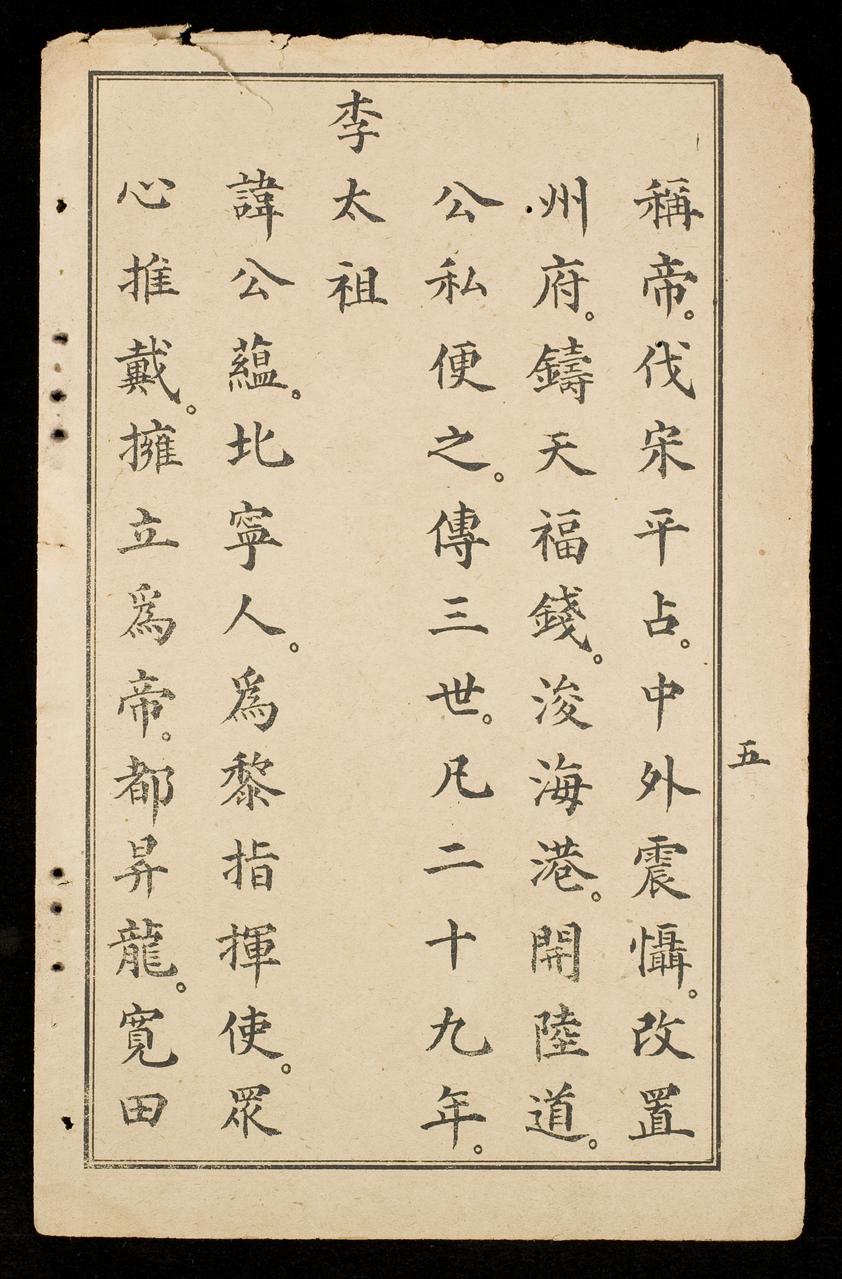 稱帝。伐宋平占。中外震懾。改置
州府。鑄天福錢。浚海港。開陸道。
公私便之。傳三世。凡二十九年。
李太祖
諱公蘊。北寧人。爲黎指揮使。眾
心推戴。擁立爲帝。都昇龍。寬田
五